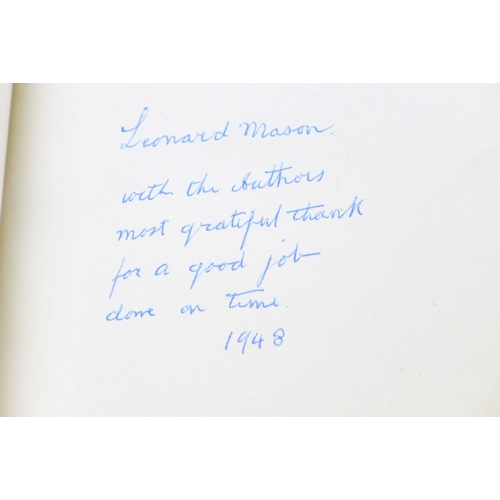 Leonard Mason.
with the Authors
most grateful thank
for a good job
done on time.
1948